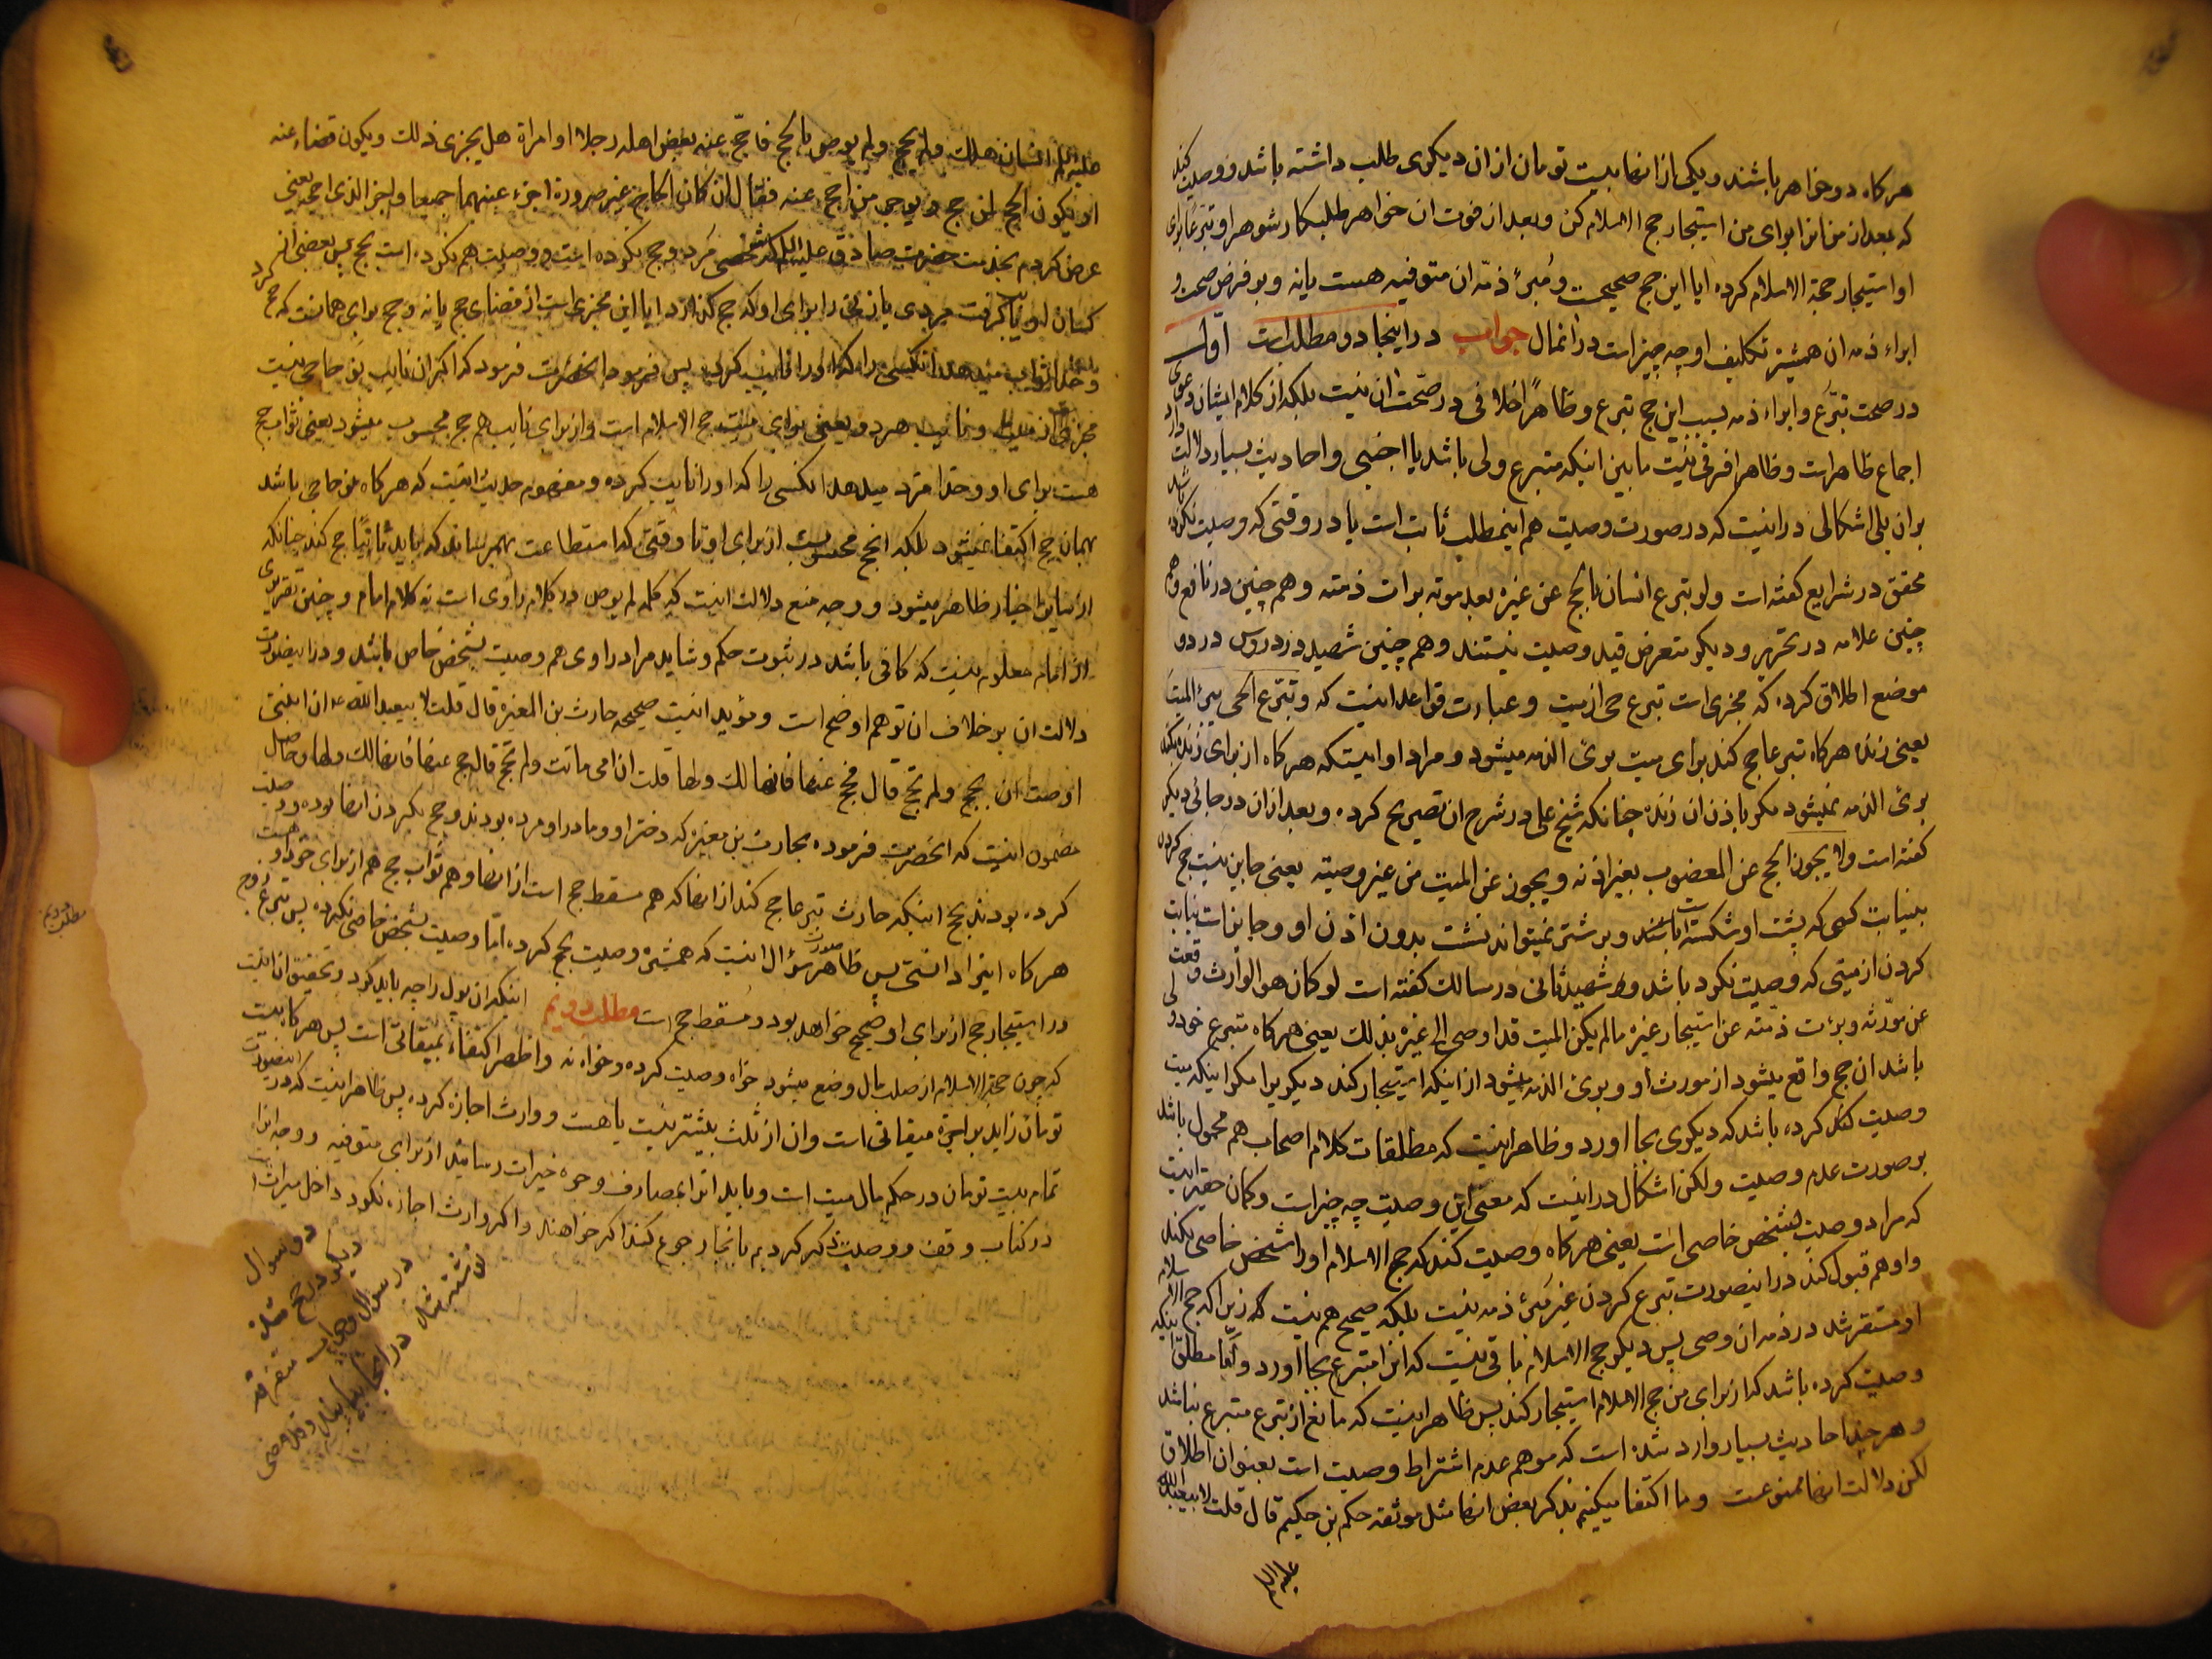 هرکاه دو خواهر باشند و یکی از انها بیست تومان از ان دیکری طلب داشته باشد و وصیت کند
که بعد از من انرا برای من استیجار حج الاسلام کن و بعد از فوت ان خواهر طلبکار شوهر او تبرعا برای
او استیجار حجة الاسلام کرده ایا این حج صحیحست و مبرئ ذمه ان متوفیه هست یا نه و بر فرض صحت و
ابراء ذمه ان همشیره تکلیف او چه چیز است در انمال جواب در اینجا دو مطلب است اول
در صحت تبرع و ابراء ذمه بسبب این حج تبرع و ظاهراً خلافی در صحت ان نیست بلکه از کلام ایشان دعوی
اجماع ظاهر است و ظاهرا فرقی نیست ما بین اینکه متبرع ولی باشد یا اجنبی و احادیث بسیار دلالت دارد
بر ان بلی اشکالی در اینست که در صورت وصیت هم اینمطلب ثابت است یا در وقتی که وصیت نکرده باشد
محقق در شرایع کفته است ولو تبرع انسان بالحج عن غیره بعد موته برات ذمته و هم چنین در نافع و هم
چنین علامه در تحریر و دیکر متعرض قید وصیت نیستند و هم چنین شهید در دروس در دو
موضع اطلاق کرده که مجزی است تبرع حی از میت و عبارت قواعد اینست که و تبرع الحی یبرئ المیت
یعنی زنده هرکاه تبرعا حج کند برای میت برئ الذمه میشود و مراد او اینست که هرکاه از برای زنده بکند
برئ الذمه نمیشود مکر باذن ان زنده چنانکه شیخ علی در شرح ان تصریح کرده و بعد از ان در جائی دیکر
کفته است ولا یجوز الحج عن المعضوب بغیر اذنه و یجوز عن المیت من غیر وصیته یعنی جایز نیست حج کردن
بنیابت کسی که پشت او شکسته است و بر شتر نمیتواند نشست بدون اذن او و جایز است نیابت
کردن از میتی که وصیت نکرد باشد و شهید ثانی در مسالک کفته است لو کان هو الوارث وقعت
عن مورثه و برئت ذمته عن استیجار غیره مالم یکن المیت قد اوصی الی غیره بذلک یعنی هرکاه متبرع خود ولی
باشد ان حج واقع میشود از مورث او و برئ الذمه میشود از اینکه استیجار کند دیکریرا مکر اینکه میت
وصیت کرده باشد که دیکری بجا اورد و ظاهر اینست که مطلقات کلام اصحاب هم محمول باشد
بر صورت عدم وصیت ولکن اشکال در اینست که معنی این وصیت چه چیز است و کمان حقیر اینست
که مراد وصیت بشخص خاصی است یعنی هرکاه وصیت کند که حج الاسلام او را شخص خاصی بکند
و او هم قبول کند در اینصورت تبرع کردن غیر مبرئ ذمه نیست بلکه صحیح هم نیست که زیرا که حج الاسلام
او مستقر شد در ذمه ان وصی پس دیکر حج الاسلام باقی نیست که انرا متبرع بجا اورد و اما مطلق اینکه
وصیت کرده باشد که از برای من حج الاسلام استیجار کنند پس ظاهر اینست که مانع از تبرع متبرع نباشد
و هر چند احادیث بسیار وارد شده است که موهم عدم اشتراط وصیت است بعنوان اطلاق
لکن دلالت انها ممنوعست و ما اکتفا میکنیم بذکر بعض انها مثل موثقه حکم بن حکیم قال قلت لابیعبدالله
علیه السلام
علیه السلام انسان هلک ولم یحج ولم یوص بالحج فاحج عنه بعض اهله رجلا او امراة هل یجزی ذلک و یکون قضاء عنه
او یکون الحج لمن حج و یوجر من احج عنه فقال ان کان الحاج غیر صرورة اجزء عنهما جمیعا واجر الذی احجه یعنی
عرض کردم بخدمت حضرت صادق علیه السلام که شخصی مرد و حج نکرده است و وصیت هم نکرده است بحج پس بعضی از
کسان او نایب کرفت مردی یا زنی را برای او که حج کند ایا این مجزی است از قضای حج یا نه و حج برای همانست که حج کرد
و خدا ثواب میدهد انکسی را که او را نایب کرده پس فرمود انحضرت فرمود که اکر ان نایب نو حاجی نیست
مجزی از میت و نایب هر دو یعنی برای میت حج الاسلام است و از برای نایب هم حج محسوب میشود یعنی ثواب حج
هست برای او و خدا مزد میدهد انکسی را که او را نایب کرده و مفهوم حدیث اینست که هرکاه نو حاجی باشد
بهمان حج اکتفا نمیشود بلکه انحج محسوبست از برای او تا وقتی که استطاعت بهمرساند که باید ثانیاً حج کند چنانکه
از سایر اخبار ظاهر میشود و وجه منع دلالت اینست که کلمه لم یوص در کلام راوی است نه کلام امام و چنین تقریری
از امام معلوم نیست که کافی باشد در ثبوت حکم و شاید مراد راوی هم وصیت بشخص خاص باشد و در اینصورت
دلالت ان بر خلاف ان توهم اوضح است و مؤید اینست صحیحه حارث بن المغیره قال قلت لابیعبدالله ان ابنتی
اوصت ان یحج ولم تحج قال فحج عنها فانها لک ولها قلت ان امی ماتت ولم تحج قال حج عنها فانها لک ولها و حاصل
مضمون اینست که انحضرت فرموده بحارث بن مغیره که دختر او و مادر او مرده بودند و حج نکردن انها بوده و وصیت
کرده بودند بحج اینکه حارث تبرعا حج کند از انها که هم مسقط حج است از انها و هم ثواب حج هم از برای خود او هست
هرکاه اینرا دانستی پس ظاهر صورت سؤال اینست که همشیره وصیت بحج کرده اما وصیت بشخص خاصی نکرده پس تبرع زوج
در استیجار حج از برای او صحیح خواهد بود و مسقط حج است مطلب دویم اینکه ان پول را چه باید کرد و تحقیق ان اینست
که چون حجة الاسلام از صلب مال وضع میشود خواه وصیت کرده و خواه نه و اظهر اکتفاء بمیقاتی است پس هرکاه بیست
تومان زاید بر اجرة میقاتی است و ان از ثلث بیشتر نیست یا هست و وارث اجازه کرده پس ظاهر اینست که در اینصورت
تمام بیست تومان در حکم مال میت است و باید انرا بمصارف وجوه خیرات رسانید از برای متوفیه و وجه انرا
در کتاب وقف و وصیت ذکر کردیم بانجا رجوع کنند اکر خواهند و اکر وارث اجازه نکرد داخل میراث
مطلب دویم
دو سوال
دیکر در حج
در سوال و جواب متفرقه
نوشته شد در انجا